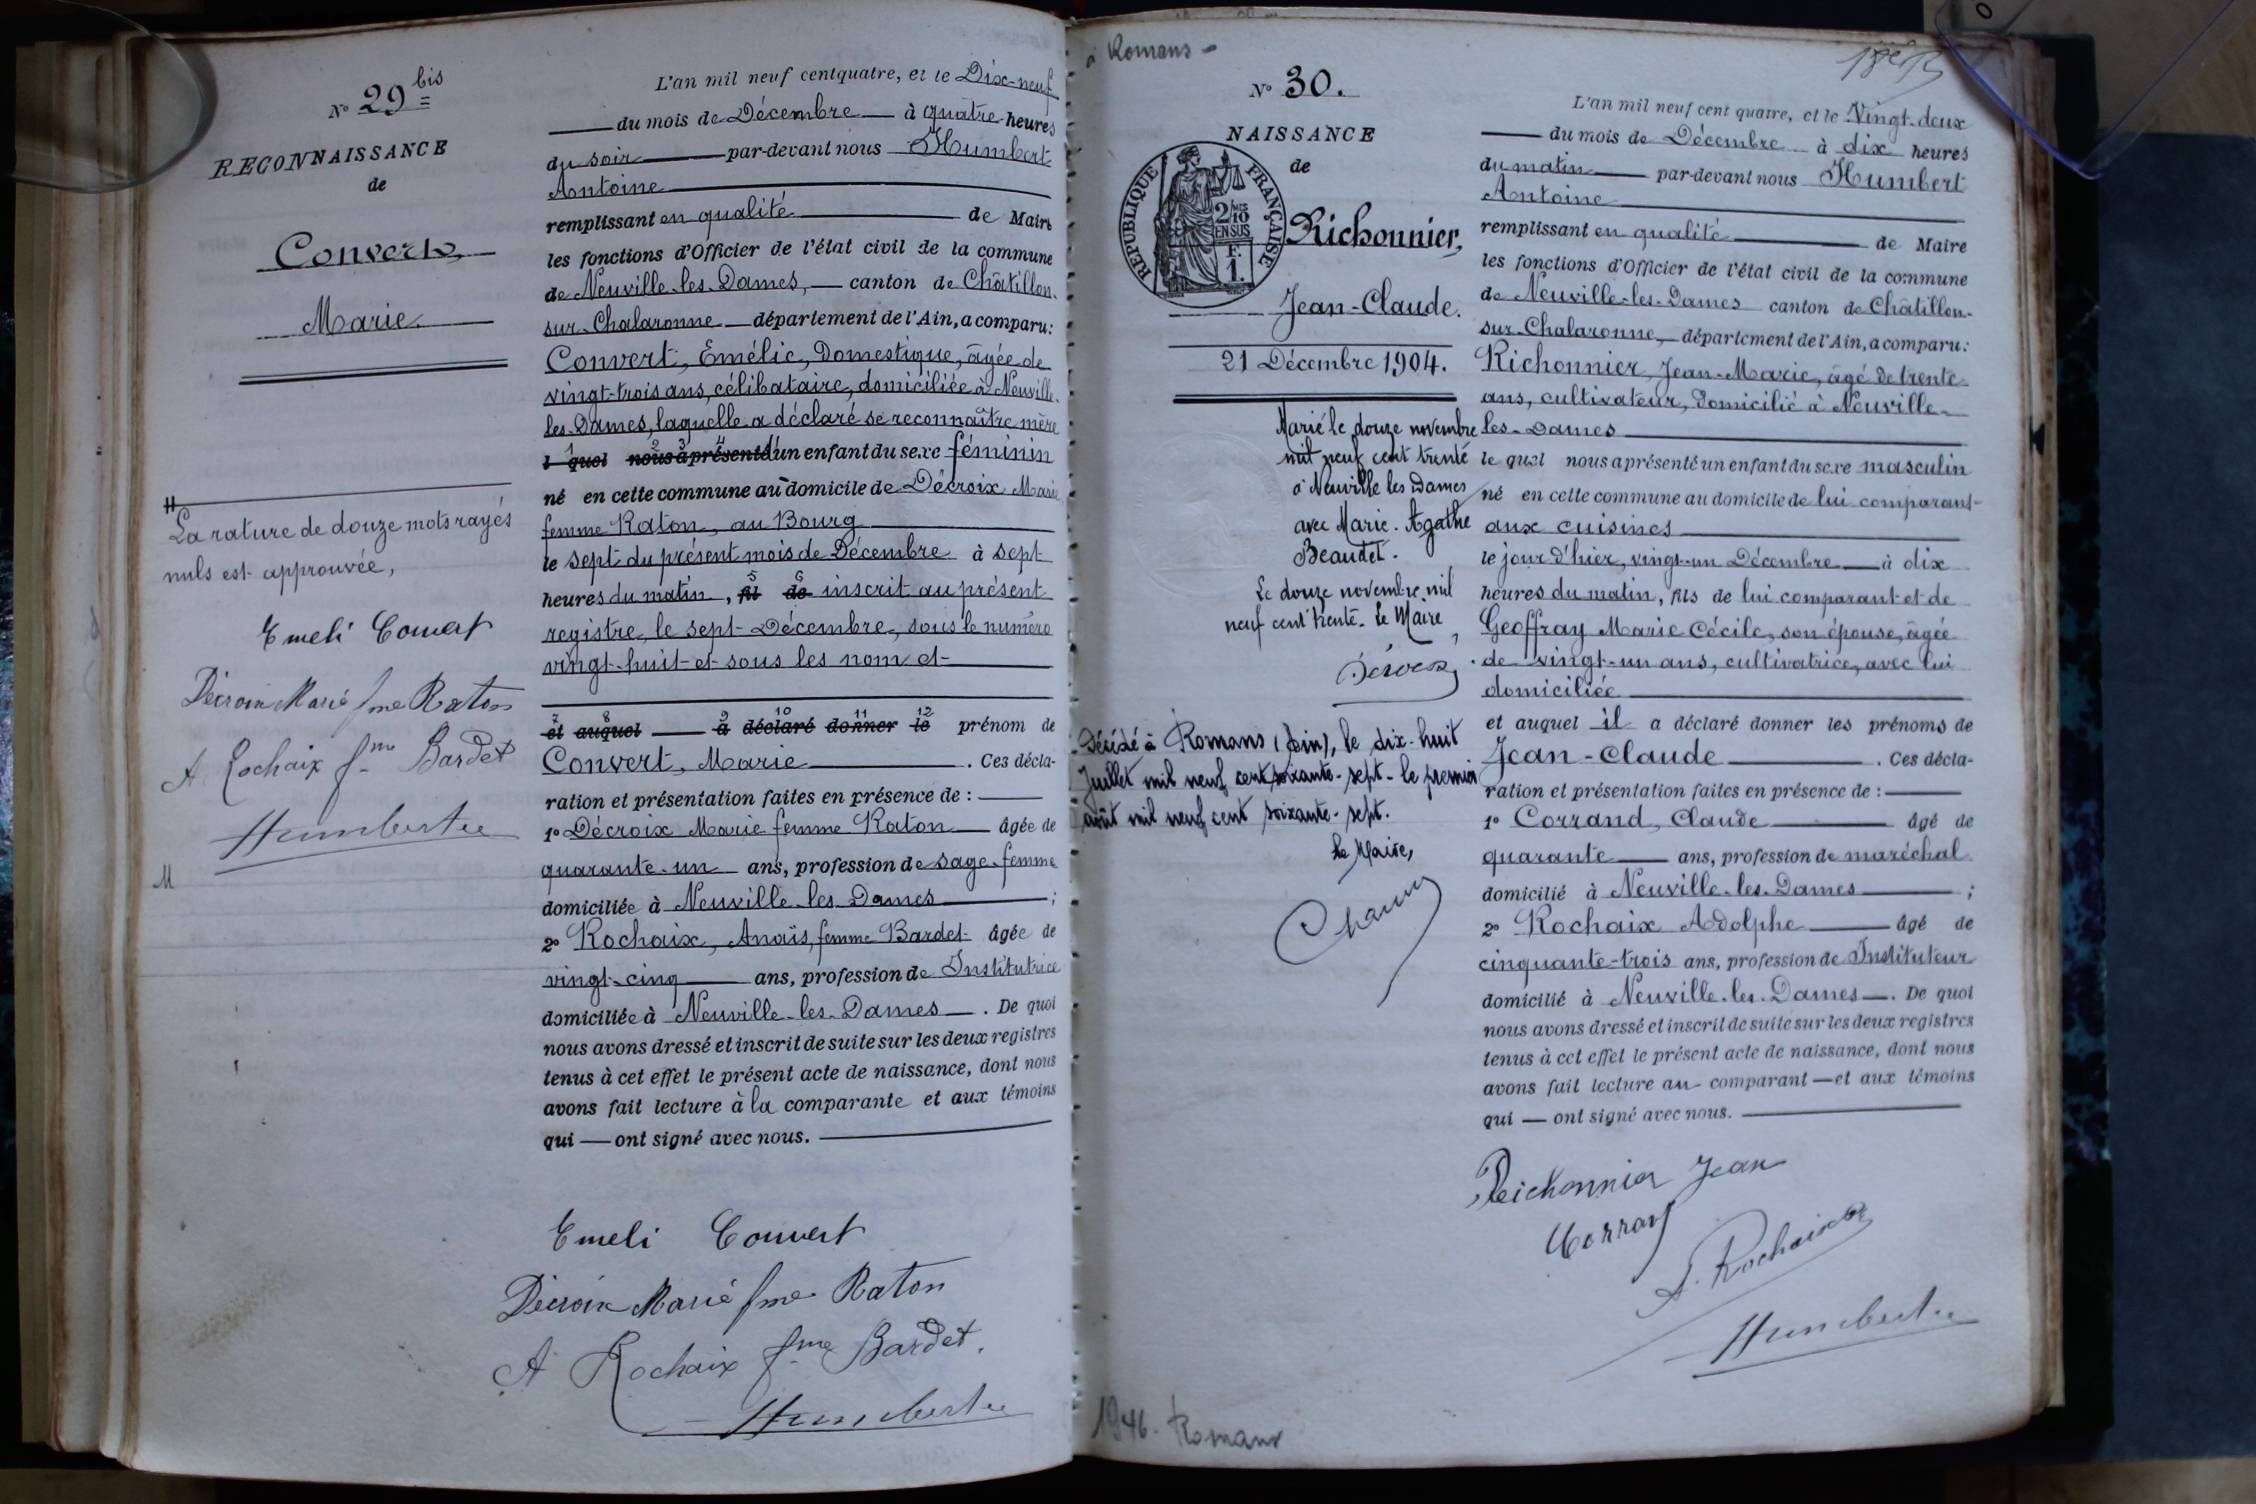 No 29 bis
RECONNAISSANCE
de
Convert,
Marie.
La rature de douze mots rayés
nuls est approuvée,
Emeli Convert
Décroix Marie fme Raton
A Rochaix fme Bardet
Humbert
M
L'an mil neuf cent quatre, et le Dix-neuf
du mois de Décembre à quatre heures
du soir par-devant nous Humbert
Antoine
remplissant en qualité de Maire
les fonctions d'Officier de l'état civil de la commune
de Neuville-les-Dames, canton de Châtillon-
sur-Chalaronne département de l'Ain, a comparu:
Convert, Emélie, Domestique, âgée de
vingt-trois ans, célibataire, domiciliée à Neuville-
les-Dames, laquelle a déclaré se reconnaître mère
1 2 3 4
l quel nous a présenté d'un enfant du sexe féminin
né en cette commune au domicile de Décroix Marie
femme Raton, au Bourg
le sept du présent mois de Décembre à sept
5 6
heures du matin, fil de inscrit au présent
registre, le sept Décembre, sous le numéro
vingt-huit et sous les nom et
7 8 9 10 11 12
et auquel a déclaré donner le prénom de
Convert, Marie . Ces décla-
ration et présentation faites en présence de :
1o Décroix Marie femme Raton âgée de
quarante-un ans, profession de sage-femme
domiciliée à Neuville-les-Dames ;
2o Rochaix, Anaïs, femme Bardet âgée de
vingt-cinq ans, profession de Institutrice
domiciliée à Neuville-les-Dames . De quoi
nous avons dressé et inscrit de suite sur les deux registres
tenus à cet effet le présent acte de naissance, dont nous
avons fait lecture à la comparante et aux témoins
qui — ont signé avec nous.
Emeli Convert
Décroix Marie fme Raton
A Rochaix fme Bardet.
Humbert
à Romans -
No 30.
NAISSANCE
de
RÉPUBLIQUE FRANÇAISE
2/10
EN SUS
F.
1.
Richonnier,
Jean-Claude.
21 Décembre 1904.
Marié le douze novembre
mil neuf cent trente
à Neuville les Dames
avec Marie-Agathe
Beaudet.
Le douze novembre mil
neuf cent trente. Le Maire,
Décédé à Romans (Ain), le dix-huit
Juillet mil neuf cent soixante-sept - le premier
août mil neuf cent soixante-sept.
Le Maire,
1946. Romans
L'an mil neuf cent quatre, et le Vingt-deux
du mois de Décembre à dix heures
du matin par-devant nous Humbert
Antoine
remplissant en qualité de Maire
les fonctions d'Officier de l'état civil de la commune
de Neuville-les-Dames canton de Châtillon-
sur-Chalaronne, département de l'Ain, a comparu:
Richonnier, Jean-Marie, âgé de trente
ans, cultivateur, domicilié à Neuville-
les-Dames
le quel nous a présenté un enfant du sexe masculin
né en cette commune au domicile de lui comparant
aux cuisines
le jour d'hier, vingt-un Décembre à dix
heures du matin, fils de lui comparant et de
Geoffray Marie Cécile, son épouse, âgée
de vingt-un ans, cultivatrice, avec lui
domiciliée
et auquel il a déclaré donner les prénoms de
Jean-Claude . Ces décla-
ration et présentation faites en présence de :
1o Corrand, Claude âgé de
quarante ans, profession de maréchal
domicilié à Neuville-les-Dames ;
2o Rochaix Adolphe âgé de
cinquante-trois ans, profession de Instituteur
domicilié à Neuville-les-Dames . De quoi
nous avons dressé et inscrit de suite sur les deux registres
tenus à cet effet le présent acte de naissance, dont nous
avons fait lecture au comparant — et aux témoins
qui — ont signé avec nous.
Richonnier Jean
A. Rochaix
Humbert